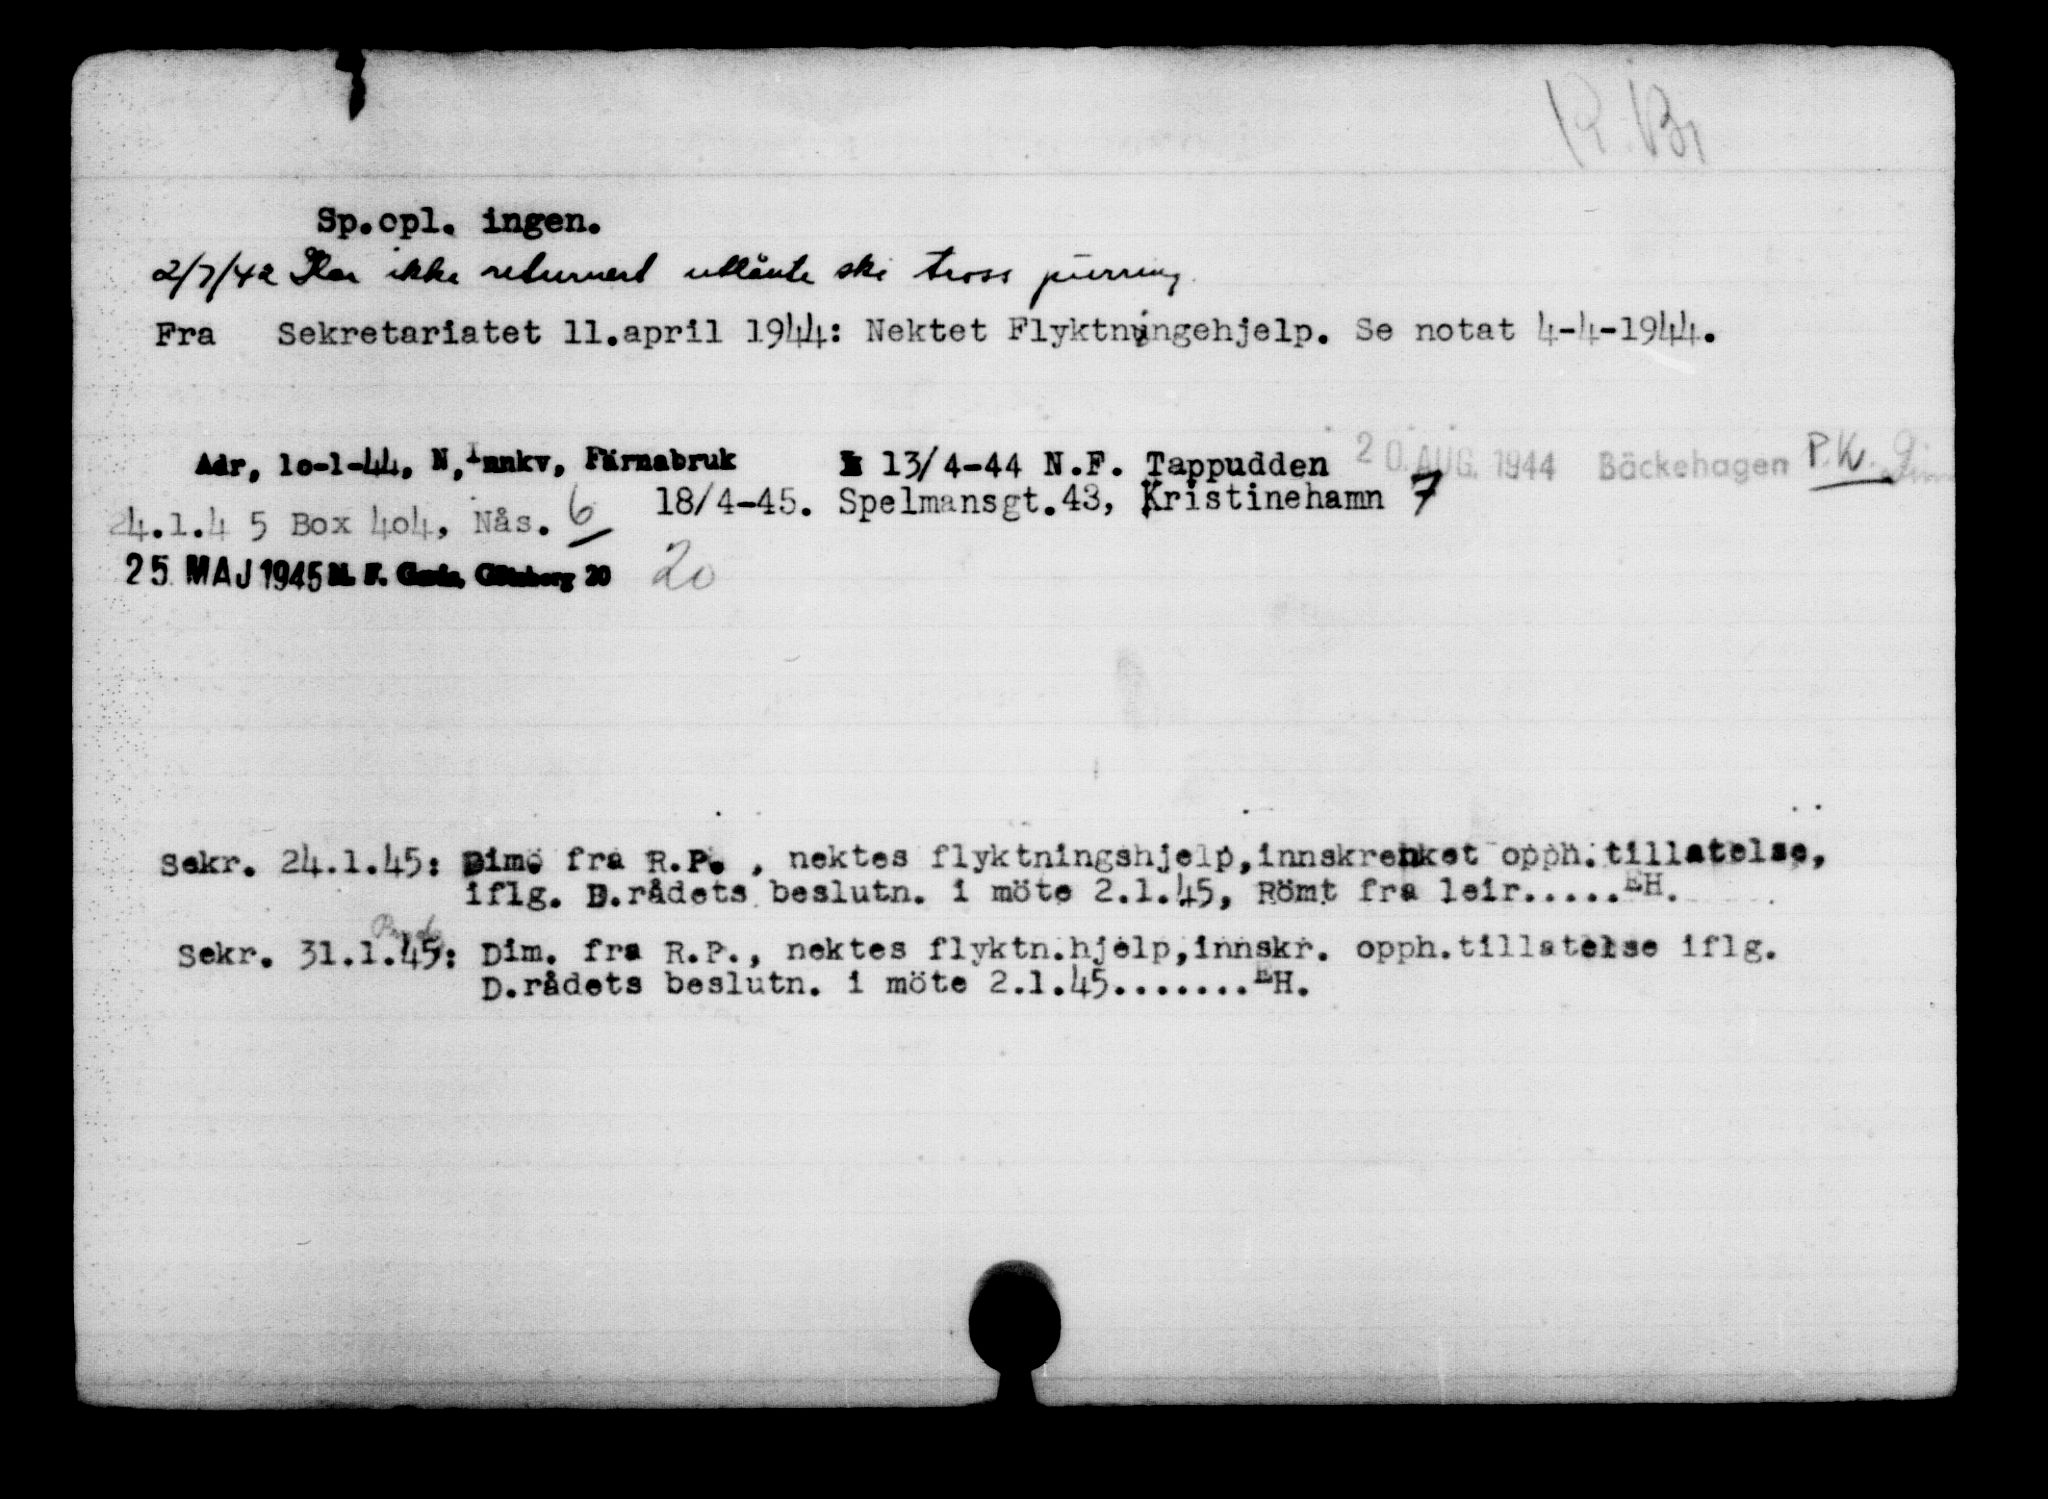 R. Br
Sp.opl. ingen.
2/7/42 Har ikke returnert utlånte ski tross purring.
Fra Sekretariatet 11.april 1944: Nektet Flyktningehjelp. Se notat 4-4-1944.
Adr, 10-1-44, N, Innkv, Färnabruk 13/4-44 N.F. Tappudden 20. AUG. 1944 Bäckehagen P.K.
24.1.4 5 Box 404, Nås. 6 18/4-45. Spelmansgt.43, Kristinehamn 7
25. MAJ 1945 N. F. Gerda, Göteborg 20 20
Sekr. 24.1.45: Dim. fra R.P. , nektes flyktningshjelp,innskrenket opph.tillatelse,
iflg. D.rådets beslutn. i möte 2.1.45, Römt fra leir.....EH.
Sekr. 31.1.45: Dim. fra R.P., nektes flyktn.hjelp,innskr. opph.tillatelse iflg.
D.rådets beslutn. i möte 2.1.45.......EH.